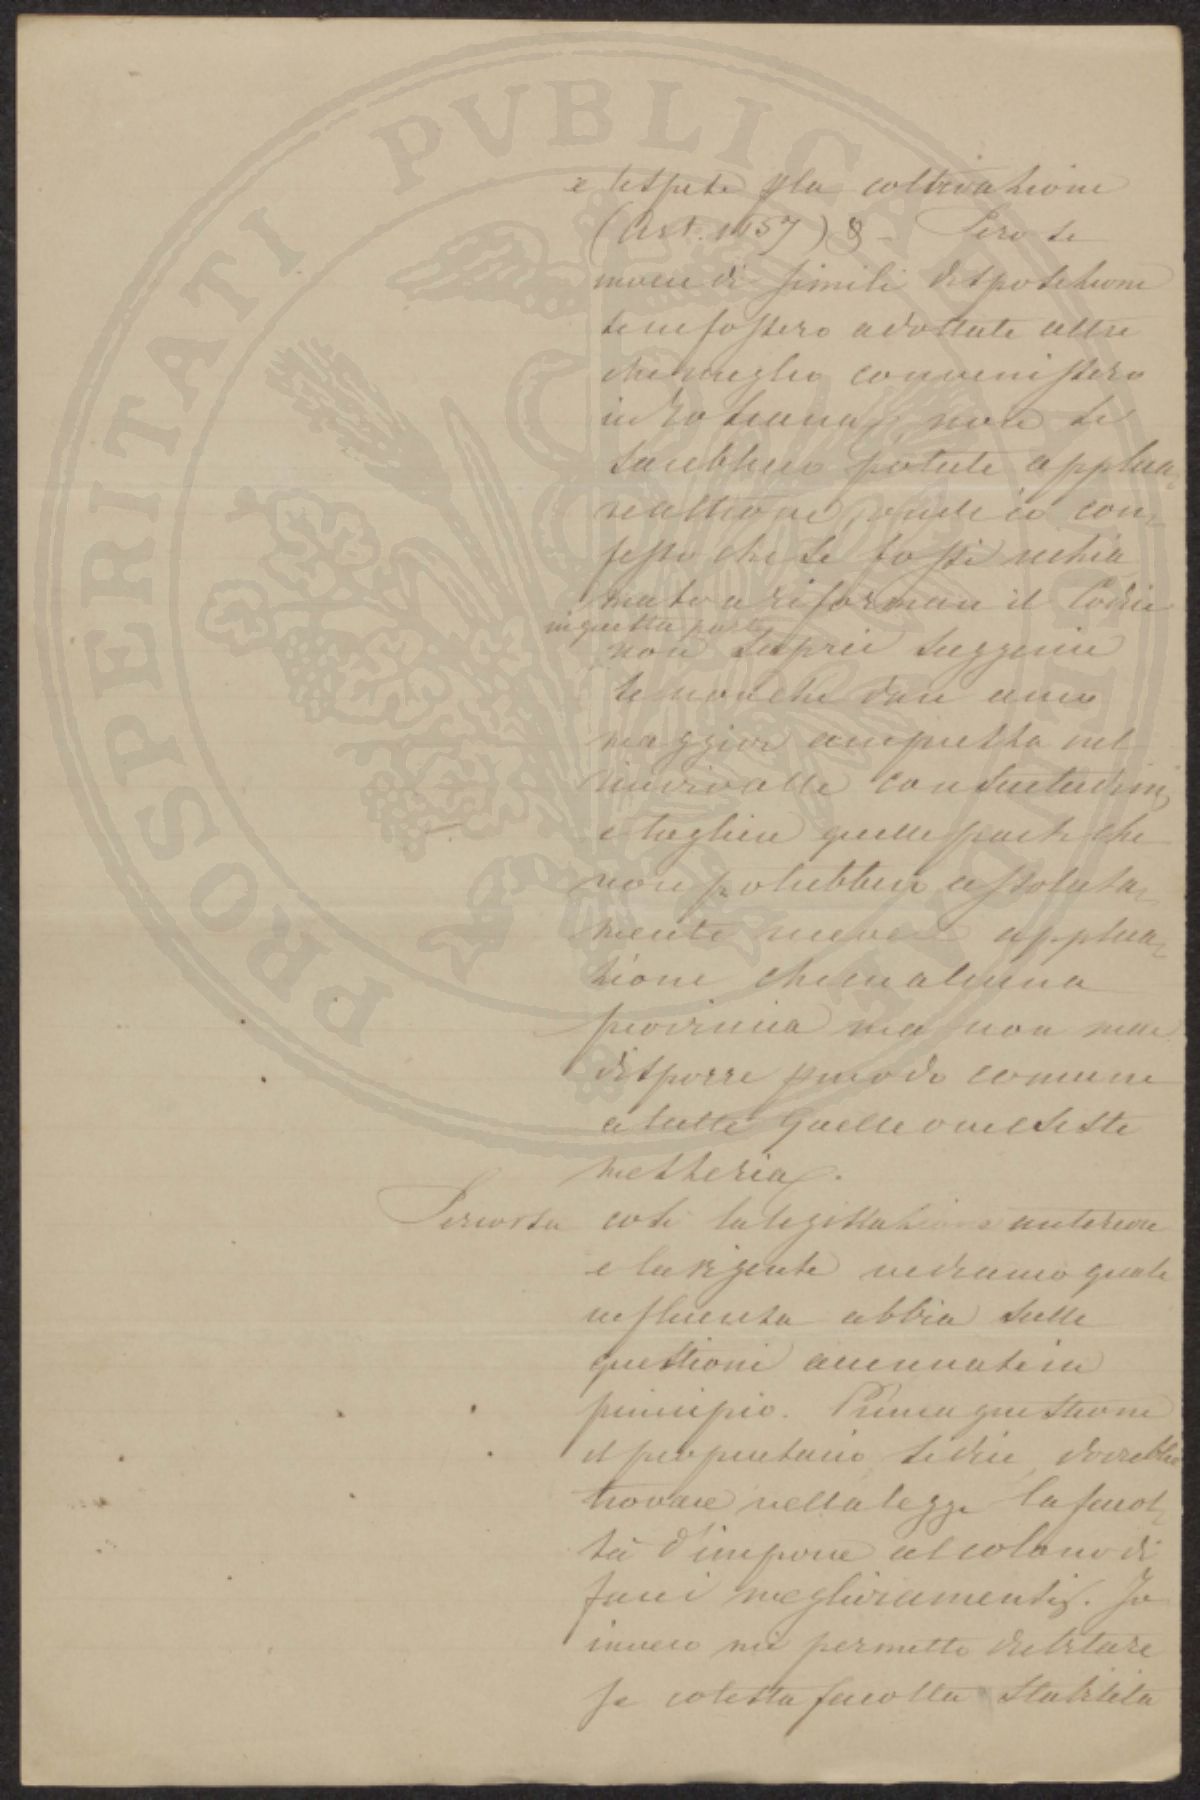 PROSPERITATI PVBLICAE AVGENDAE
e spese p la coltivazione
(Art. 1657) § - Però se
invece di simili disposizioni
se ne fossero adottate altre
che meglio convenissero
in Toscana, non si
sarebbero potute applica-
re altrove, onde io con-
fesso che se fossi richia
mato a riformare il Codice
in questa parte
non saprei suggerire
se non che dare anco
maggior ampiezza nel
rinvio alle consuetudini,
e togliere quelle parti che
non potrebbero assoluta-
mente avere applica-
zione che in alcuna
provincia ma non mai
disporre p modo comune
a tutte quelle ov'esiste
mezzeria.
Percorsa così la legislazione anteriore
e la vigente vediamo quale
influenza abbia sulle
questioni accennate in
principio. Prima questione
il proprietario si dice, dovrebbe
trovare nella legge la facol-
tà d'imporre al colono di
farci miglioramenti. Io
invero mi permetto dubitare
se cotesta facoltà stabilita